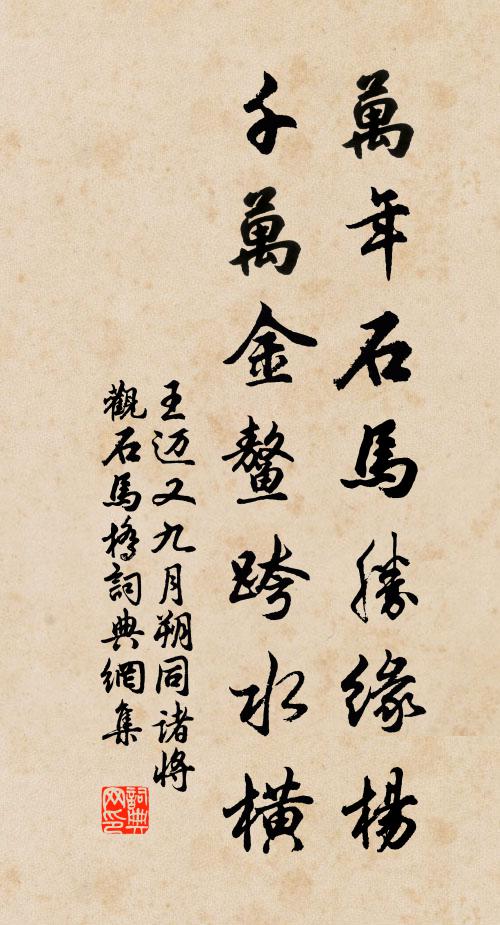 萬年石馬勝緣楊
千萬金鰲跨水橫
王迈又九月朔同诸將
觀石馬橋詞典網集
詞典网印